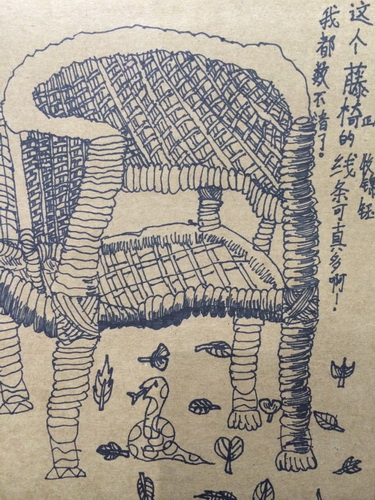 这个藤椅的线条可真多啊!
我都数不清了!